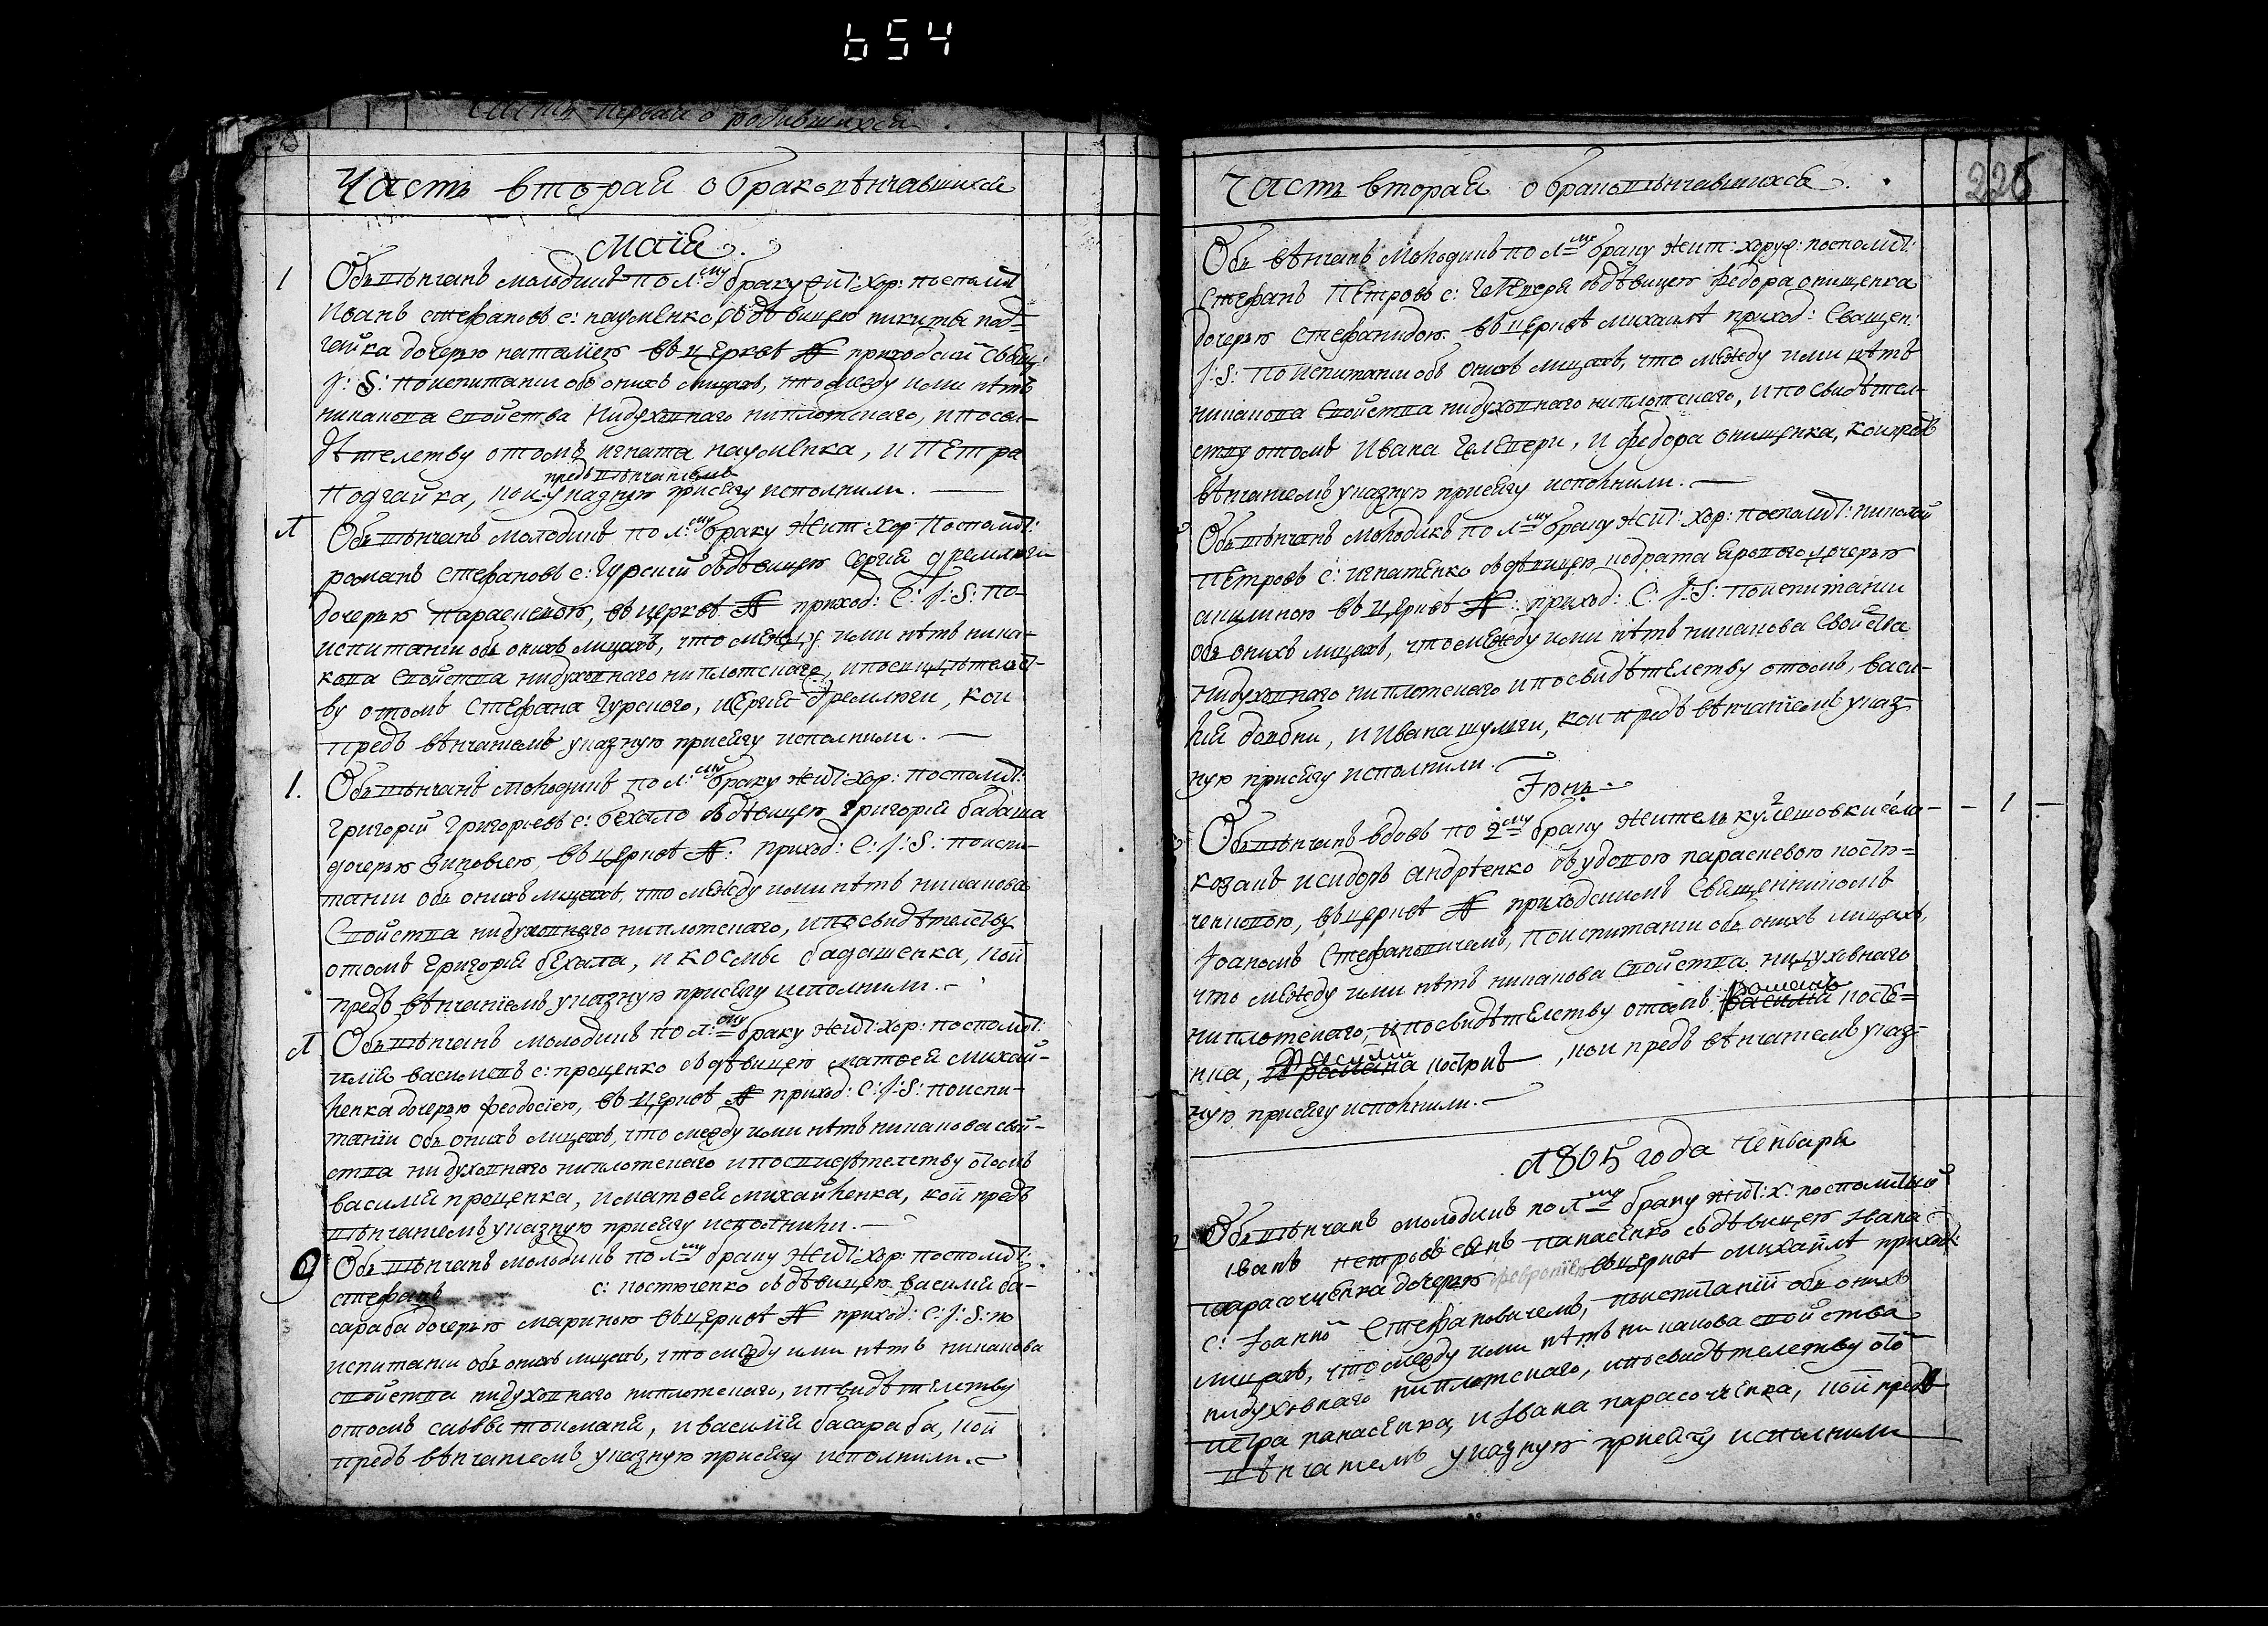 654
Часть первая о родившихся
Часть вторая о бракосвѣнчавшихся
Маія
1 Объвѣнчанъ молодикъ по л:му браку жит: Хор: посполит:
Иванъ стефановъ с: науменко, съ дѣвицею никиты под=
гайка дочерью наталіею въ церквѣ приходскій Свящ:
J: S: по испитаніи объ онихъ лицахъ, что между ими нѣтъ
никакова свойства нидуховнаго ниплотскаго, и по сви-
дѣтелству о томъ игната науменка, и Петра
предъ вѣнчаніемъ
Подгайка, кои указную присягу исполнили.
Л Объвѣнчанъ молодикъ по л:му браку жит: Хор: Посполит:
романъ Стефановъ с: Гурскій съ дѣвицею Сергія дремлюги
дочерью Параскевою, въ церквѣ приход: С: J: S: по
испитаніи объ онихъ лицахъ, что между ими нѣтъ ника-
кова свойства нидуховнаго ниплотскаго, и по свидѣтелст-
ву о томъ Стефана Гурского, и Сергія Дремлюги, кои
предъ вѣнчаніемъ указную присягу исполнили.
1. Объвѣнчанъ молодикъ по л:му браку жит: Хор: посполит:
григорій григоріевъ с: бехало съ дѣвицею григорія бадаша
дочерью зиновіею въ церквѣ приход: С: J: S: по испи-
таніи объ онихъ лицахъ, что между ими нѣтъ никакова
Свойства нидуховнаго ниплотскаго, и по свидѣтелству
о томъ григорія бехала, и космы бадашенка, кои
предъ вѣнчаніемъ указную присягу исполнили.
Л Объвѣнчанъ молодикъ по л:му браку жит: Хор: посполит:
илія василіевъ с: проценко съ дѣвицею матѳея михай-
ленка дочерью феодосіею, въ церквѣ приход: С: J: S: по испи-
таніи объ онихъ лицахъ, что между ими нѣтъ никакова свой-
ства нидуховнаго ниплотскаго и по свидѣтелству о томъ
василія проценка, и матѳея михайленка, кои предъ
вѣнчаніемъ указную присягу исполнили.
9 Объвѣнчанъ молодикъ по л:му браку жит: Хор: посполит:
стефанъ с: костюченко съ дѣвицею василія ба-
сараба дочерью мариною въ церквѣ приход: С: J: S: по
испитаніи объ онихъ лицахъ, что между ими нѣтъ никакова
свойства нидуховнаго ниплотскаго, и по свидѣтелству
о томъ саввы товмача, и василія басараба, кои
предъ вѣнчаніемъ указную присягу исполнили.
Часть вторая о бракосвѣнчавшихся.
226
Объ вѣнчанъ молодикъ по л:му браку жит: хоруж: посполит:
Стефанъ Петровъ с: Чепера съ дѣвицею федора онищенка
дочерью стефанидою въ церквѣ михаила приход: Священ:
J: S: по испитаніи объ онихъ лицахъ, что между ими нѣтъ
никакова Свойства нидуховнаго ниплотскаго, и по свидѣтел-
ству о томъ Ивана Чепери, и федора онищенка, кои предъ
вѣнчаніемъ указную присягу исполнили.
Объвѣнчанъ молодикъ по л:му браку жит: Хор: посполит: николай
Петровъ с: игнатенко съ дѣвицею кодрата ярового дочерью
акилиною въ церквѣ приход: С: J: S: по испитаніи
объ онихъ лицахъ, что между ими нѣтъ никакова Свойства
нидуховнаго ниплотскаго и по свидѣтелству о томъ, васи-
лія довбни, и ивана шулги, кои предъ вѣнчаніемъ указ-
ную присягу исполнили.
Іюнь
Объвѣнчанъ вдовъ по 2:му браку житель кулешовки села - 1 -
козакъ исидоръ андрѣенко съ удовою параскевою костю=
ченковою, въ церквѣ приходскимъ Священникомъ
Іоаномъ Стефановичемъ, по испитаніи объ онихъ лицахъ,
что между ими нѣтъ никакова свойства нидуховнаго
романа
ниплотскаго, и по свидѣтелству о томъ василія косте=
Василія
нка, и романа кострів, кои предъ вѣнчаніемъ указ-
ную присягу исполнили.
1805 года Генваря
Объвѣнчанъ молодикъ по л:му браку жит: Х: посполитый
Іванъ петровъ сынъ панасенко съ дѣвицею Ивана
парасоченка дочерью февроніею въ церквѣ михаила приход:
С: Іоанно Стефановичемъ, по испитаніи объ онихъ
лицахъ, что между ими нѣтъ никакова свойства
нидуховнаго ниплотскаго, и по свидѣтелству о то
петра панасенка, и Ивана парасоченка, кои предъ
вѣнчаніемъ указную присягу исполнили